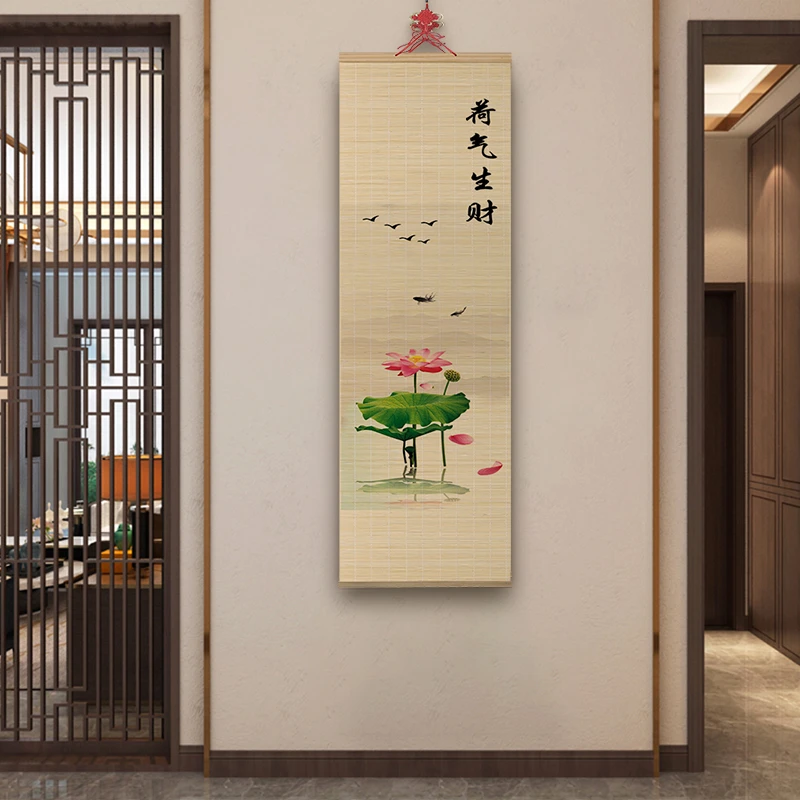 荷气生财